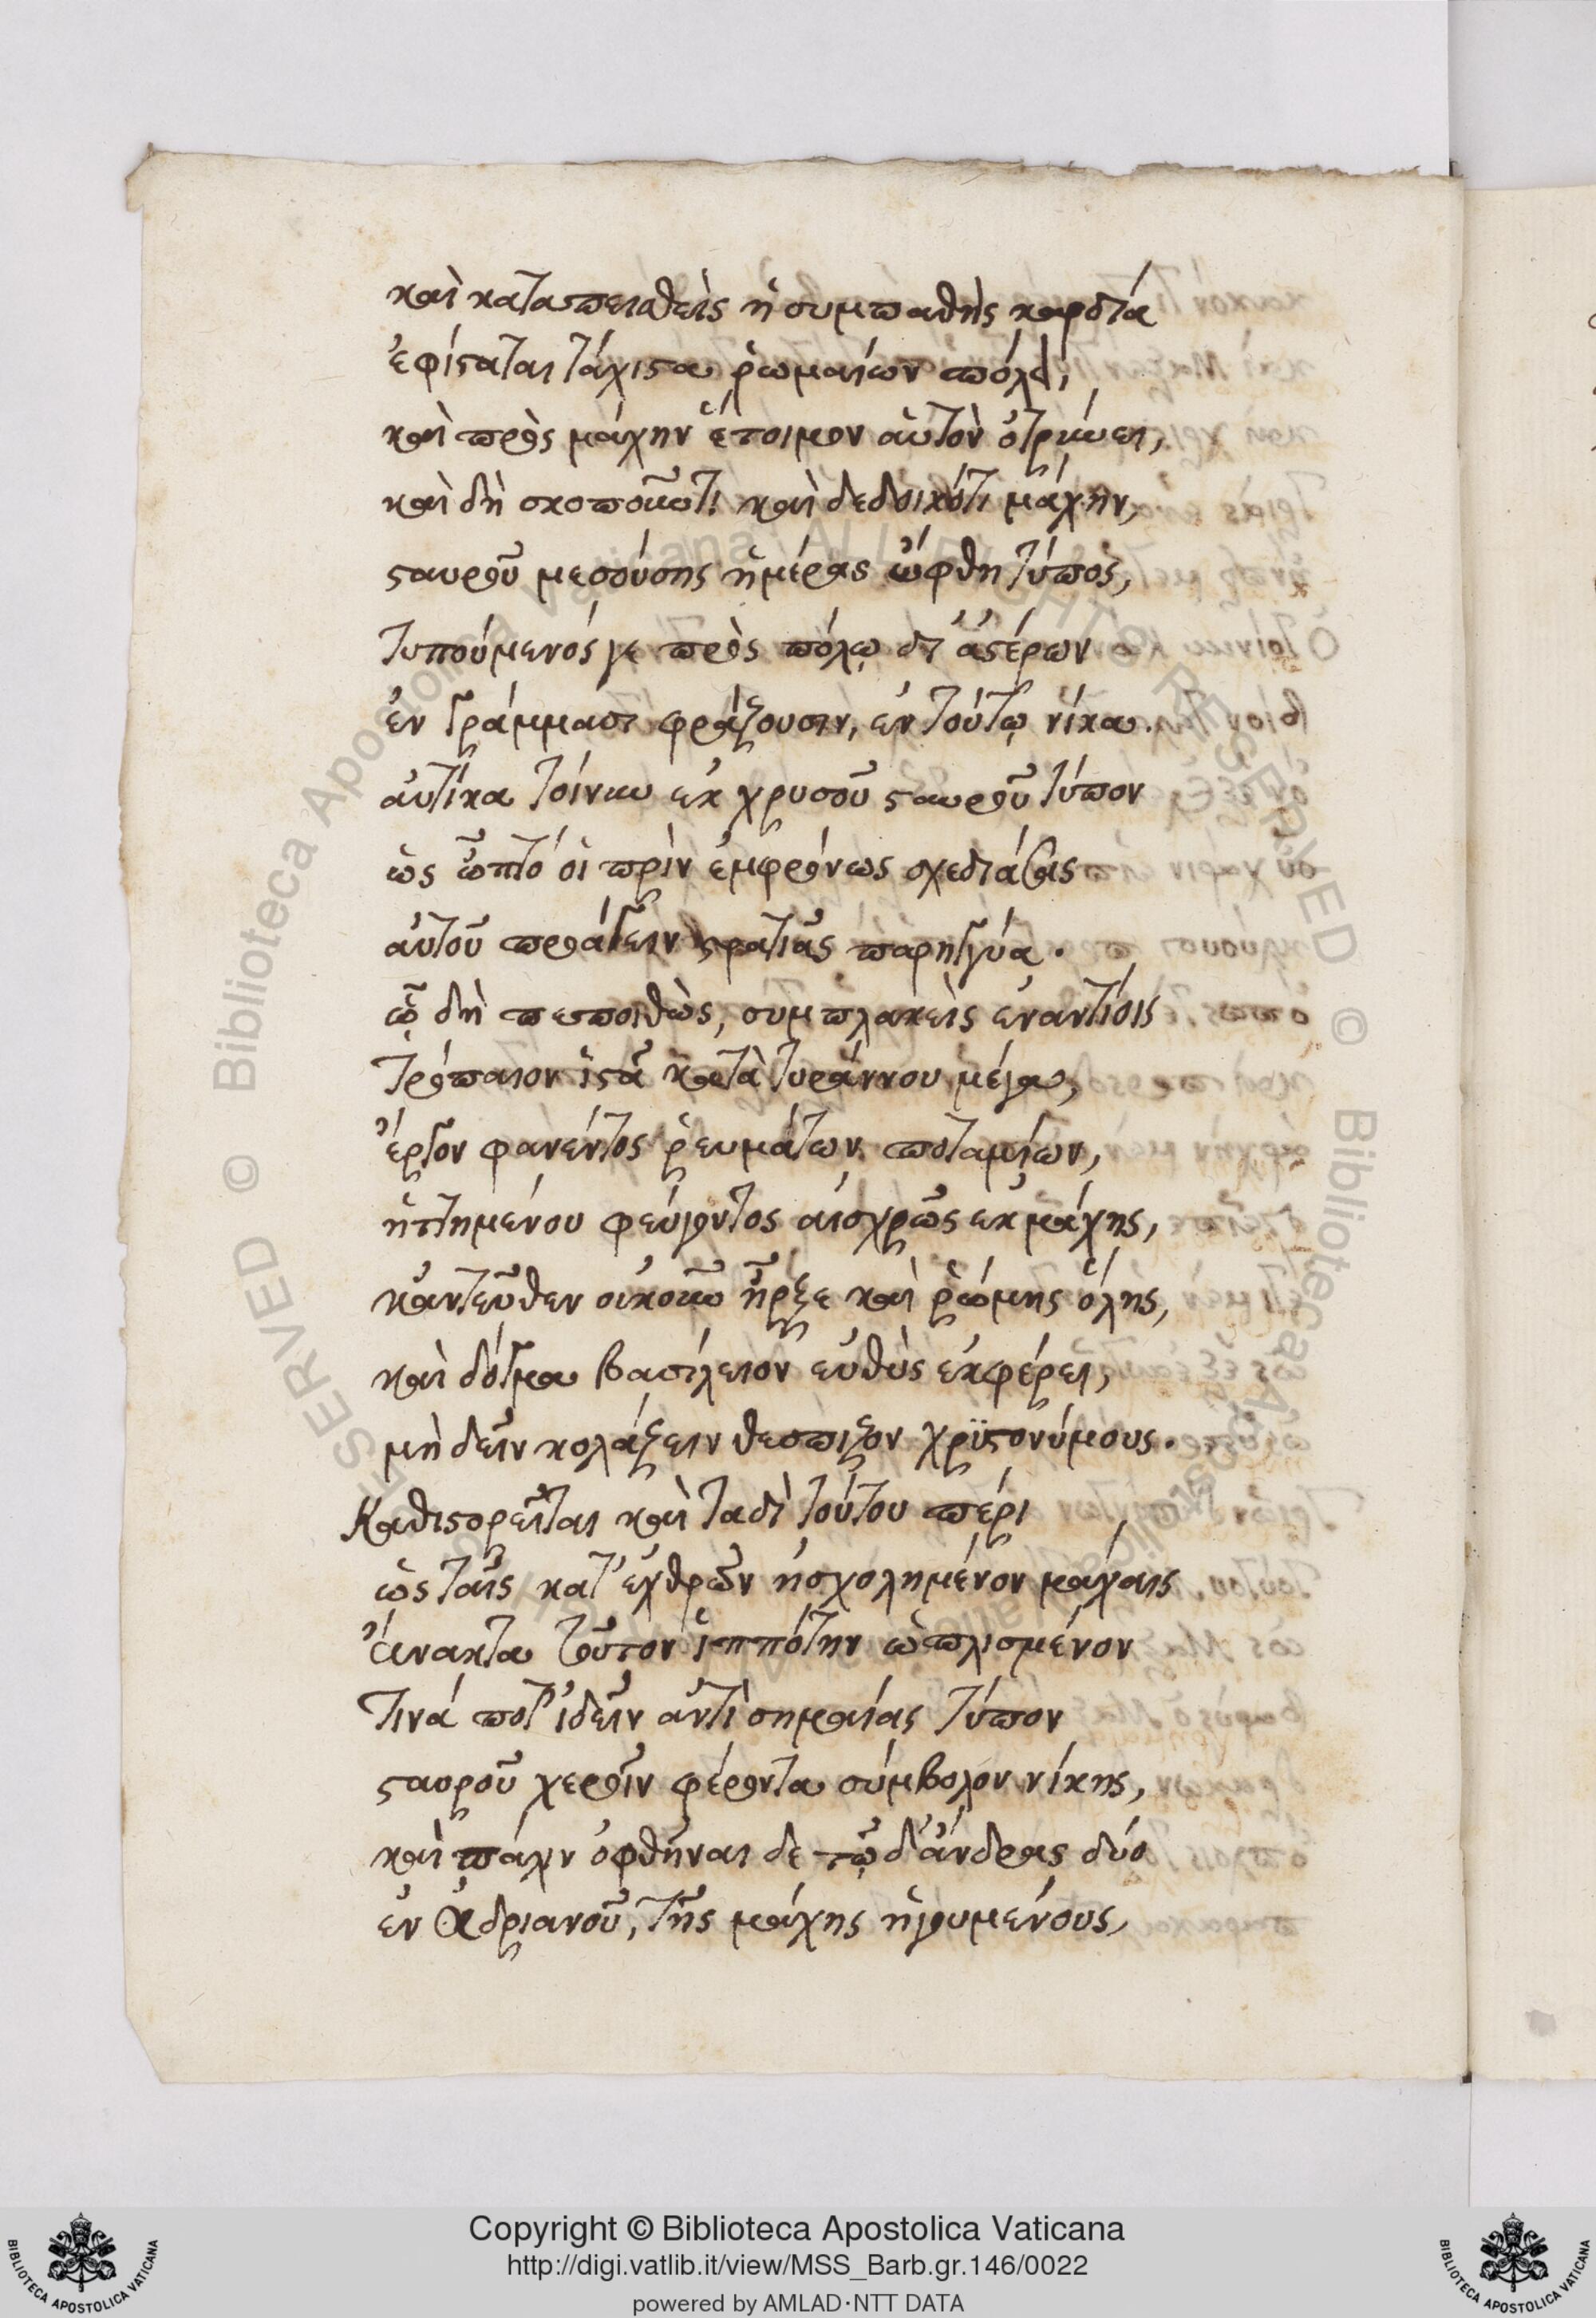 καὶ καταπεισθεὶς ἡ συμπαθὴς καρδία
ἐφίσταται τάχιστα ῥωμαίων πόλει,
καὶ πρὸς μάχην ἕτοιμον αὐτὸν ὀτρύνει,
καὶ δὴ σκοποῦντι καὶ δεδοικότι μάχην,
σταυροῦ μεσούσης ἡμέρας ὤφθη τύπος,
τυπούμενός γε πρὸς πόλῳ δι' ἀστέρων
ἐν γράμμασι φράζουσιν, ἐν τούτῳ νίκα.
αὐτίκα τοίνυν ἐκ χρυσοῦ σταυροῦ τύπον
ὡς ὦπτό οἱ πρὶν ἐμφρόνως σχεδιάσας
αὐτοῦ προάγειν στρατιᾶς παρηγγύα.
ᾧ δὴ πεποιθὼς, συμπλακεὶς ἐναντίοις
τρόπαιον ἱστᾶ κατὰ τυράννου μέγα,
ἔργον φανέντος ῥευμάτων ποταμίων,
ἡττημένου φεύγοντος αἰσχρῶς ἐκ μάχης,
κἀντεῦθεν οὐκοῦν ἦρξε καὶ ῥώμης ὅλης,
καὶ δόγμα βασίλειον εὐθὺς ἐκφέρει,
μὴ δεῖν κολάζειν θεσπίζον χριστονύμους.
Καθιστορεῖται καὶ ταδὶ τούτου πέρι
ὡς ταῖς κατ' ἐχθρῶν ἠσχολημένον μάχαις
Ἄνακτα τοῦτον ἱππότην ὡπλισμένον
τινά ποτ' ἰδεῖν ἀντὶ σημαίας τύπον
σταυροῦ χεροῖν φέροντα σύμβολον νίκης,
καὶ πάλιν ὀφθῆναι δε τῷδ' ἄνδρας δύο
ἐν Ἀδριανοῦ, τῆς μάχης ἡγουμένους,
Copyright © Biblioteca Apostolica Vaticana
http://digi.vatlib.it/view/MSS_Barb.gr.146/0022
powered by AMLAD·NTT DATA
BIBLIOTECA APOSTOLICA VATICANA
BIBLIOTECA APOSTOLICA VATICANA